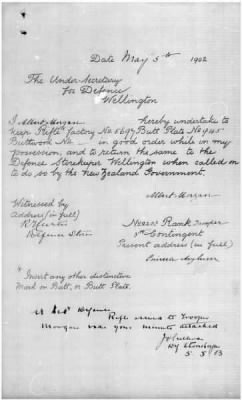 Date May 5th 1902
The Under Secretary
for Defence
Wellington
I Albert Morgan hereby undertake to
keep Rifle factory No 5697 Butt Plate No 945
Buttwood No — in good order while in my
possession, and to return the same to the
Defence Storekeeper Wellington when called on
to do so by the New Zealand Government.
Albert Morgan
Witnessed by
Address (in full)
Defence Store
Rank Trooper
Contingent
Present address (in full)
* Insert any other distinctive
Mark on Butt, or Butt Plate.
Defence
Rifle issued to Trooper
Morgan your minute attached